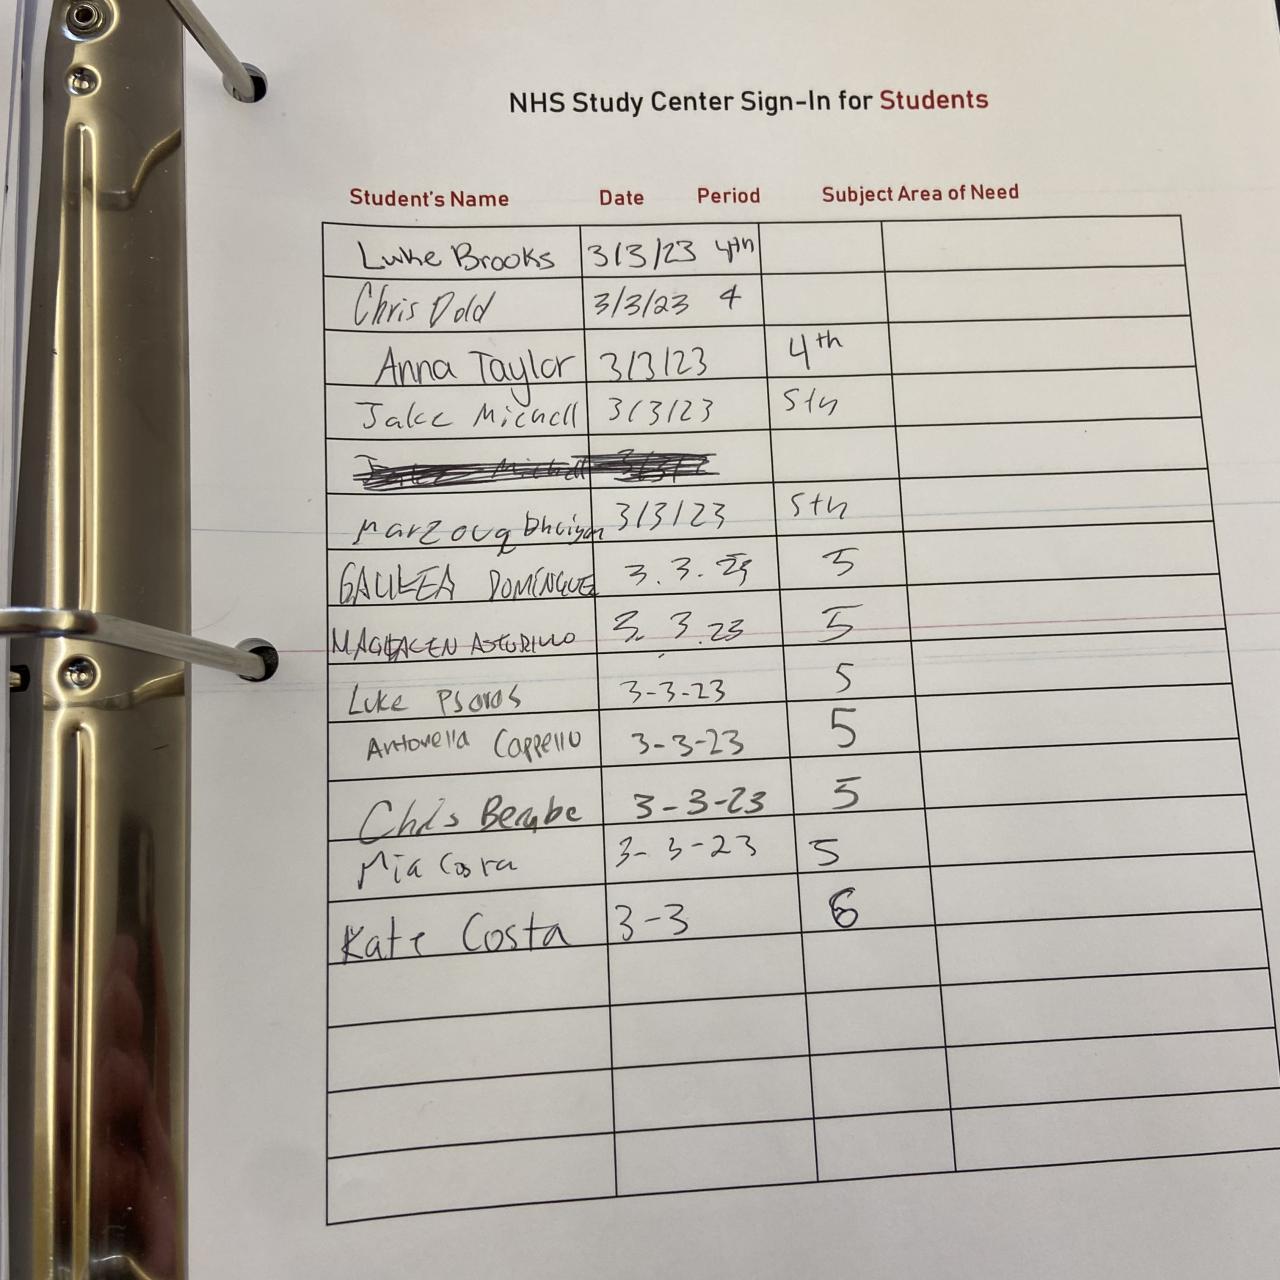 NHS Study Center Sign-In for Students
Student's Name Date Period Subject Area of Need
Luke Brooks 3/3/23 4th
Chris Dold 3/3/23 4
Anna Taylor 3/3/23 4th
Jake Michell 3/3/23 5th
Marzouq 3/3/23 5th
DOMÍNGUEZ 3.3. 5
3.3.23 5
Luke Psaros 3-3-23 5
Antonella Cappello 3-3-23 5
Chris 3-3-23 5
Mia 3-3-23 5
Kate Costa 3-3 6